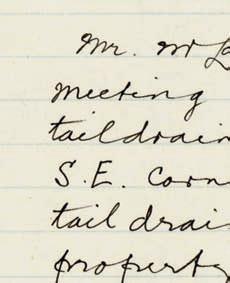 Mr. Mr
meeting
taildrain
S.E. Corn
tail drai
property